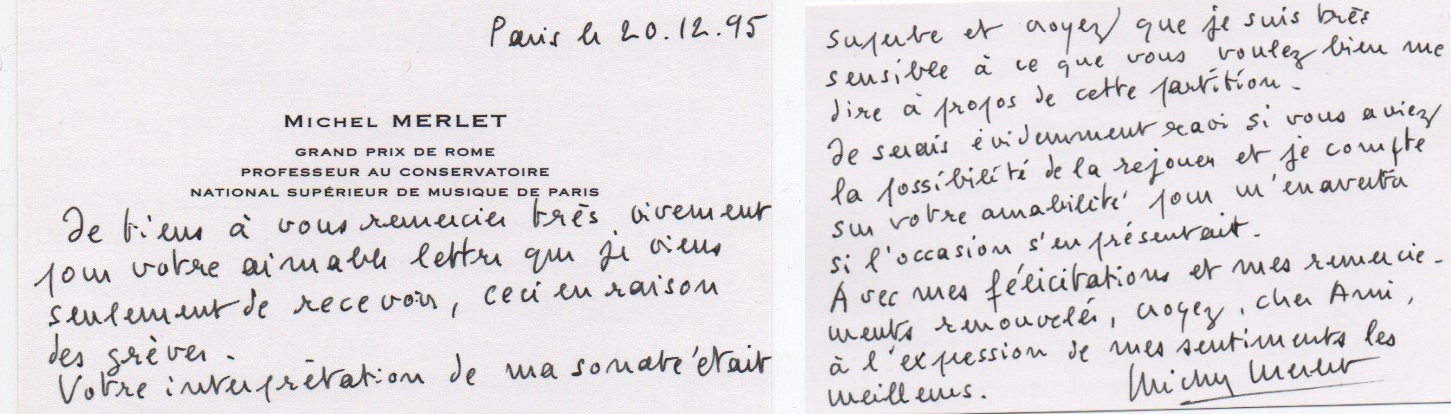 Paris le 20.12.95
MICHEL MERLET
GRAND PRIX DE ROME
PROFESSEUR AU CONSERVATOIRE
NATIONAL SUPÉRIEUR DE MUSIQUE DE PARIS
Je tiens à vous remercier très vivement
pour votre aimable lettre que je viens
seulement de recevoir, ceci en raison
des grèves.
Votre interprétation de ma sonate était
superbe et croyez que je suis très
sensible à ce que vous voulez bien me
dire à propos de cette partition.
Je serais évidemment ravi si vous aviez
la possibilité de la rejouer et je compte
sur votre amabilité pour m'en avertir
si l'occasion s'en présentait.
Avec mes félicitations et mes remercie-
ments renouvelés, croyez, cher Ami,
à l'expression de mes sentiments les
meilleurs. Michel Merlet